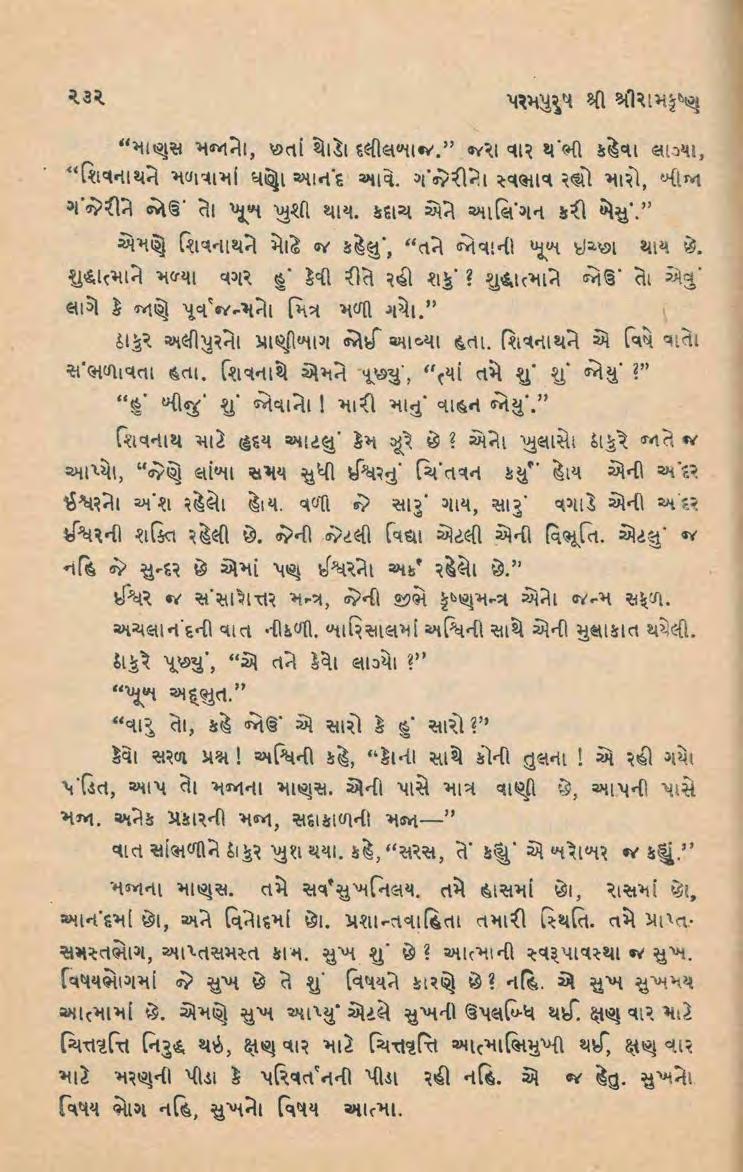 ૨૩૨ પરમપુરુષ શ્રી શ્રીરામકૃષ્ણ
“માણસ મજાનો, છતાં થોડો દલીલબાજ.” જરા વાર થંભી કહેવા લાગ્યા,
“શિવનાથને મળવામાં ઘણો આનંદ આવે. ગંજેરીનો સ્વભાવ રહ્યો મારો, બીજા
ગંજેરીને જોઉં તો ખૂબ ખુશી થાય. કદાચ એને આલિંગન કરી બેસું.”
એમણે શિવનાથને મોઢે જ કહેલું, “તને જોવાની ખૂબ ઇચ્છા થાય છે.
શુદ્ધાત્માને મળ્યા વગર હું કેવી રીતે રહી શકું ? શુદ્ધાત્માને જોઉં તો એવું
લાગે કે જાણે પૂર્વજન્મનો મિત્ર મળી ગયો.”
ઠાકુર અલીપુરનો પ્રાણીબાગ જોઈ આવ્યા હતા. શિવનાથને એ વિષે વાતો
સંભળાવતા હતા. શિવનાથે એમને પૂછ્યું, “ત્યાં તમે શું શું જોયું ?”
“હું બીજું શું જોવાનો ! મારી માનું વાહન જોયું.”
શિવનાથ માટે હૃદય આટલું કેમ ઝૂરે છે ? એનો ખુલાસો ઠાકુરે જાતે જ
આપ્યો, “જેણે લાંબા સમય સુધી ઈશ્વરનું ચિંતવન કર્યું હોય એની અંદર
ઈશ્વરનો અંશ રહેલો હોય. વળી જે સારું ગાય, સારું વગાડે એની અંદર
ઈશ્વરની શક્તિ રહેલી છે. જેની જેટલી વિદ્યા એટલી એની વિભૂતિ. એટલું જ
નહિ જે સુન્દર છે એમાં પણ ઈશ્વરનો અર્ક રહેલો છે.”
ઈશ્વર જ સંસારોત્તર મન્ત્ર, જેની જીભે કૃષ્ણમન્ત્ર એનો જન્મ સફળ.
અચલાનંદની વાત નીકળી. બારિસાલમાં અશ્વિની સાથે એની મુલાકાત થયેલી.
ઠાકુરે પૂછ્યું, “એ તને કેવો લાગ્યો ?”
“ખૂબ અદ્ભુત.”
“વારુ તો, કહે જોઉં એ સારો કે હું સારો ?”
કેવો સરળ પ્રશ્ન ! અશ્વિની કહે, “કોની સાથે કોની તુલના ! એ રહી ગયો
પંડિત, આપ તો મજાના માણસ. એની પાસે માત્ર વાણી છે, આપની પાસે
મજા. અનેક પ્રકારની મજા, સદાકાળની મજા—”
વાત સાંભળીને ઠાકુર ખુશ થયા. કહે, “સરસ, તેં કહ્યું એ બરોબર જ કહ્યું.”
મજાના માણસ. તમે સર્વસુખનિલય. તમે હાસમાં છો, રાસમાં છો,
આનંદમાં છો, અને વિનોદમાં છો. પ્રશાન્તવાહિતા તમારી સ્થિતિ. તમે પ્રાપ્ત-
સમસ્તભોગ, આપ્તસમસ્ત કામ. સુખ શું છે ? આત્માની સ્વરૂપાવસ્થા જ સુખ.
વિષયભોગમાં જે સુખ છે તે શું વિષયને કારણે છે ? નહિ. એ સુખ સુખમય
આત્મામાં છે. એમણે સુખ આપ્યું એટલે સુખની ઉપલબ્ધિ થઈ. ક્ષણ વાર માટે
ચિત્તવૃત્તિ નિરુદ્ધ થઇ, ક્ષણ વાર માટે ચિત્તવૃત્તિ આત્માભિમુખી થઈ, ક્ષણ વાર
માટે મરણની પીડા કે પરિવર્તનની પીડા રહી નહિ. એ જ હેતુ. સુખનો
વિષય ભોગ નહિ, સુખનો વિષય આત્મા.